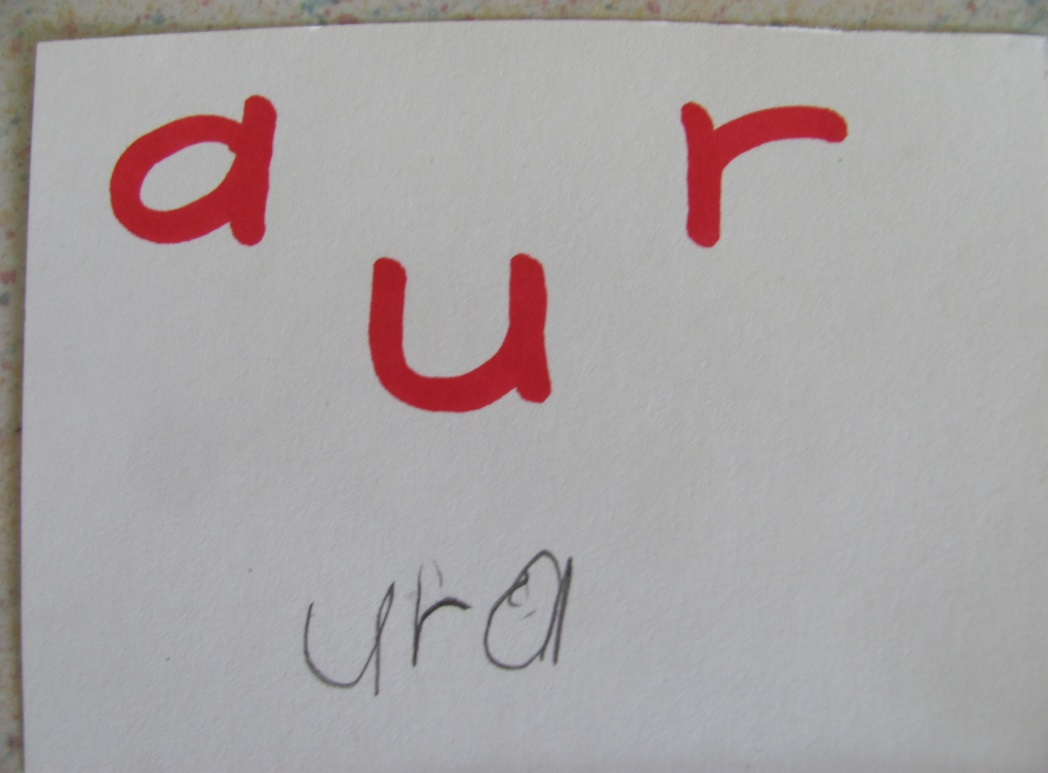 a r
u
ura